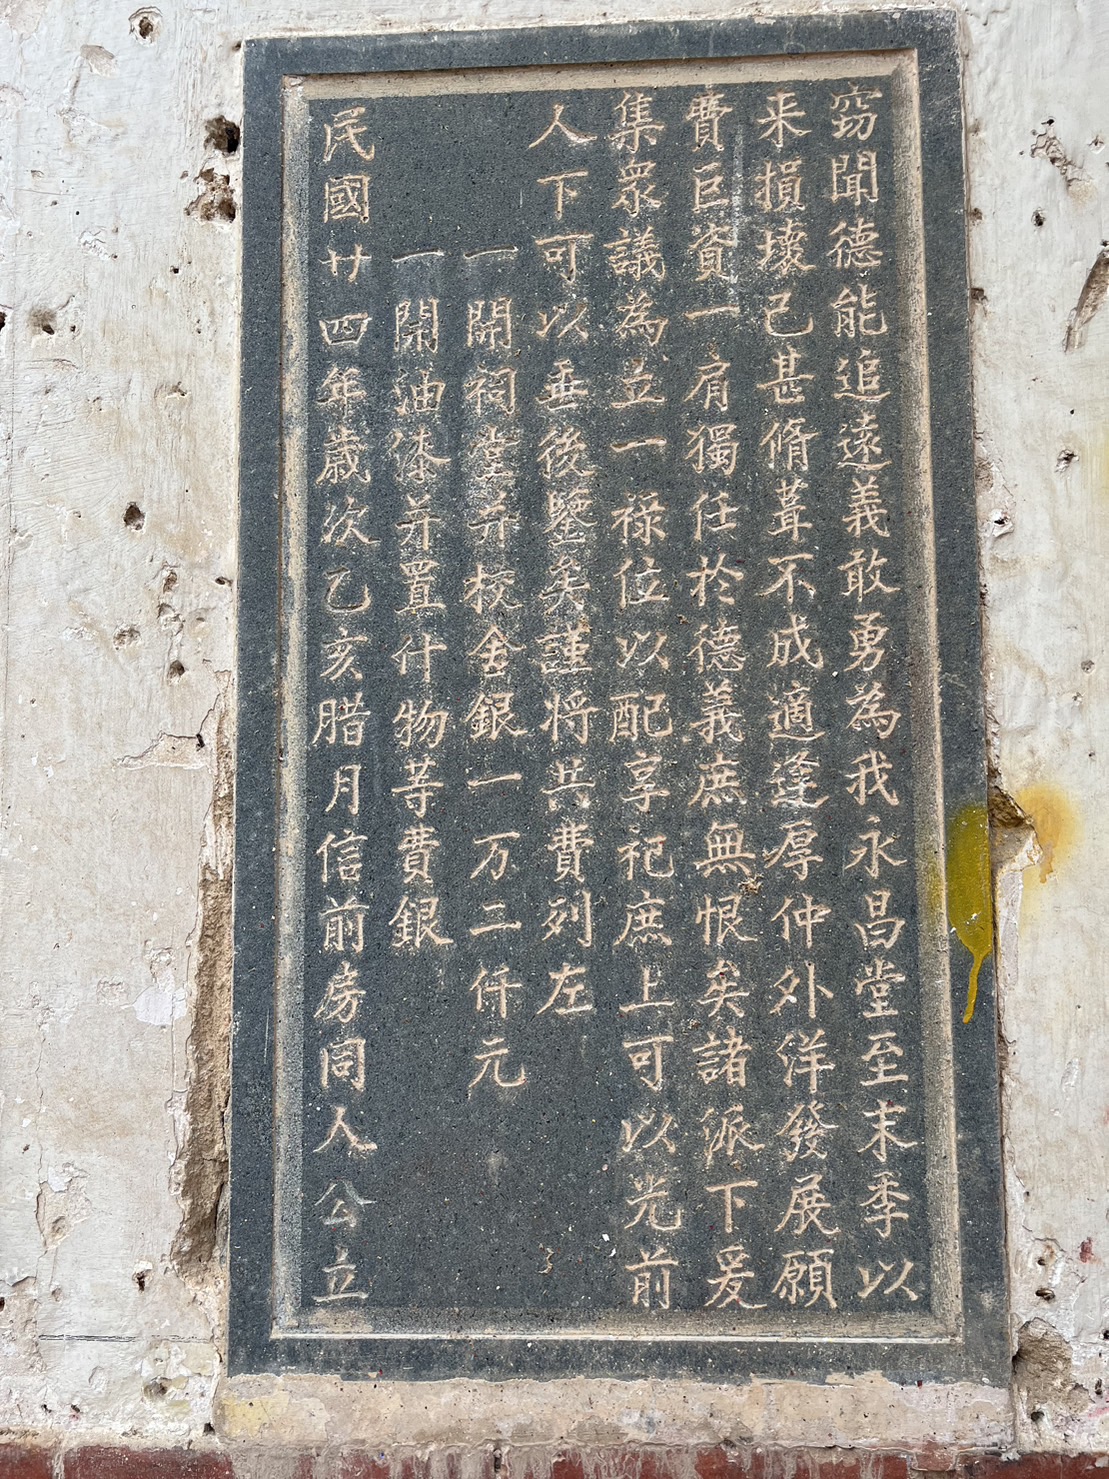 窃聞德能追遠義敢勇為我永昌堂至末季以
来損壞已甚脩葺不成適逢厚仲外洋發展願
費巨資一肩獨任於德義庶無恨矣諸派下爰
集眾議為立一禄位以配享祀庶上可以光前
人下可以垂後鑒矣謹将共費列左
一開祠堂弁校金銀一万二仟元
一開油漆弁置什物等費銀
民國廿四年歲次乙亥腊月信前房同人公立